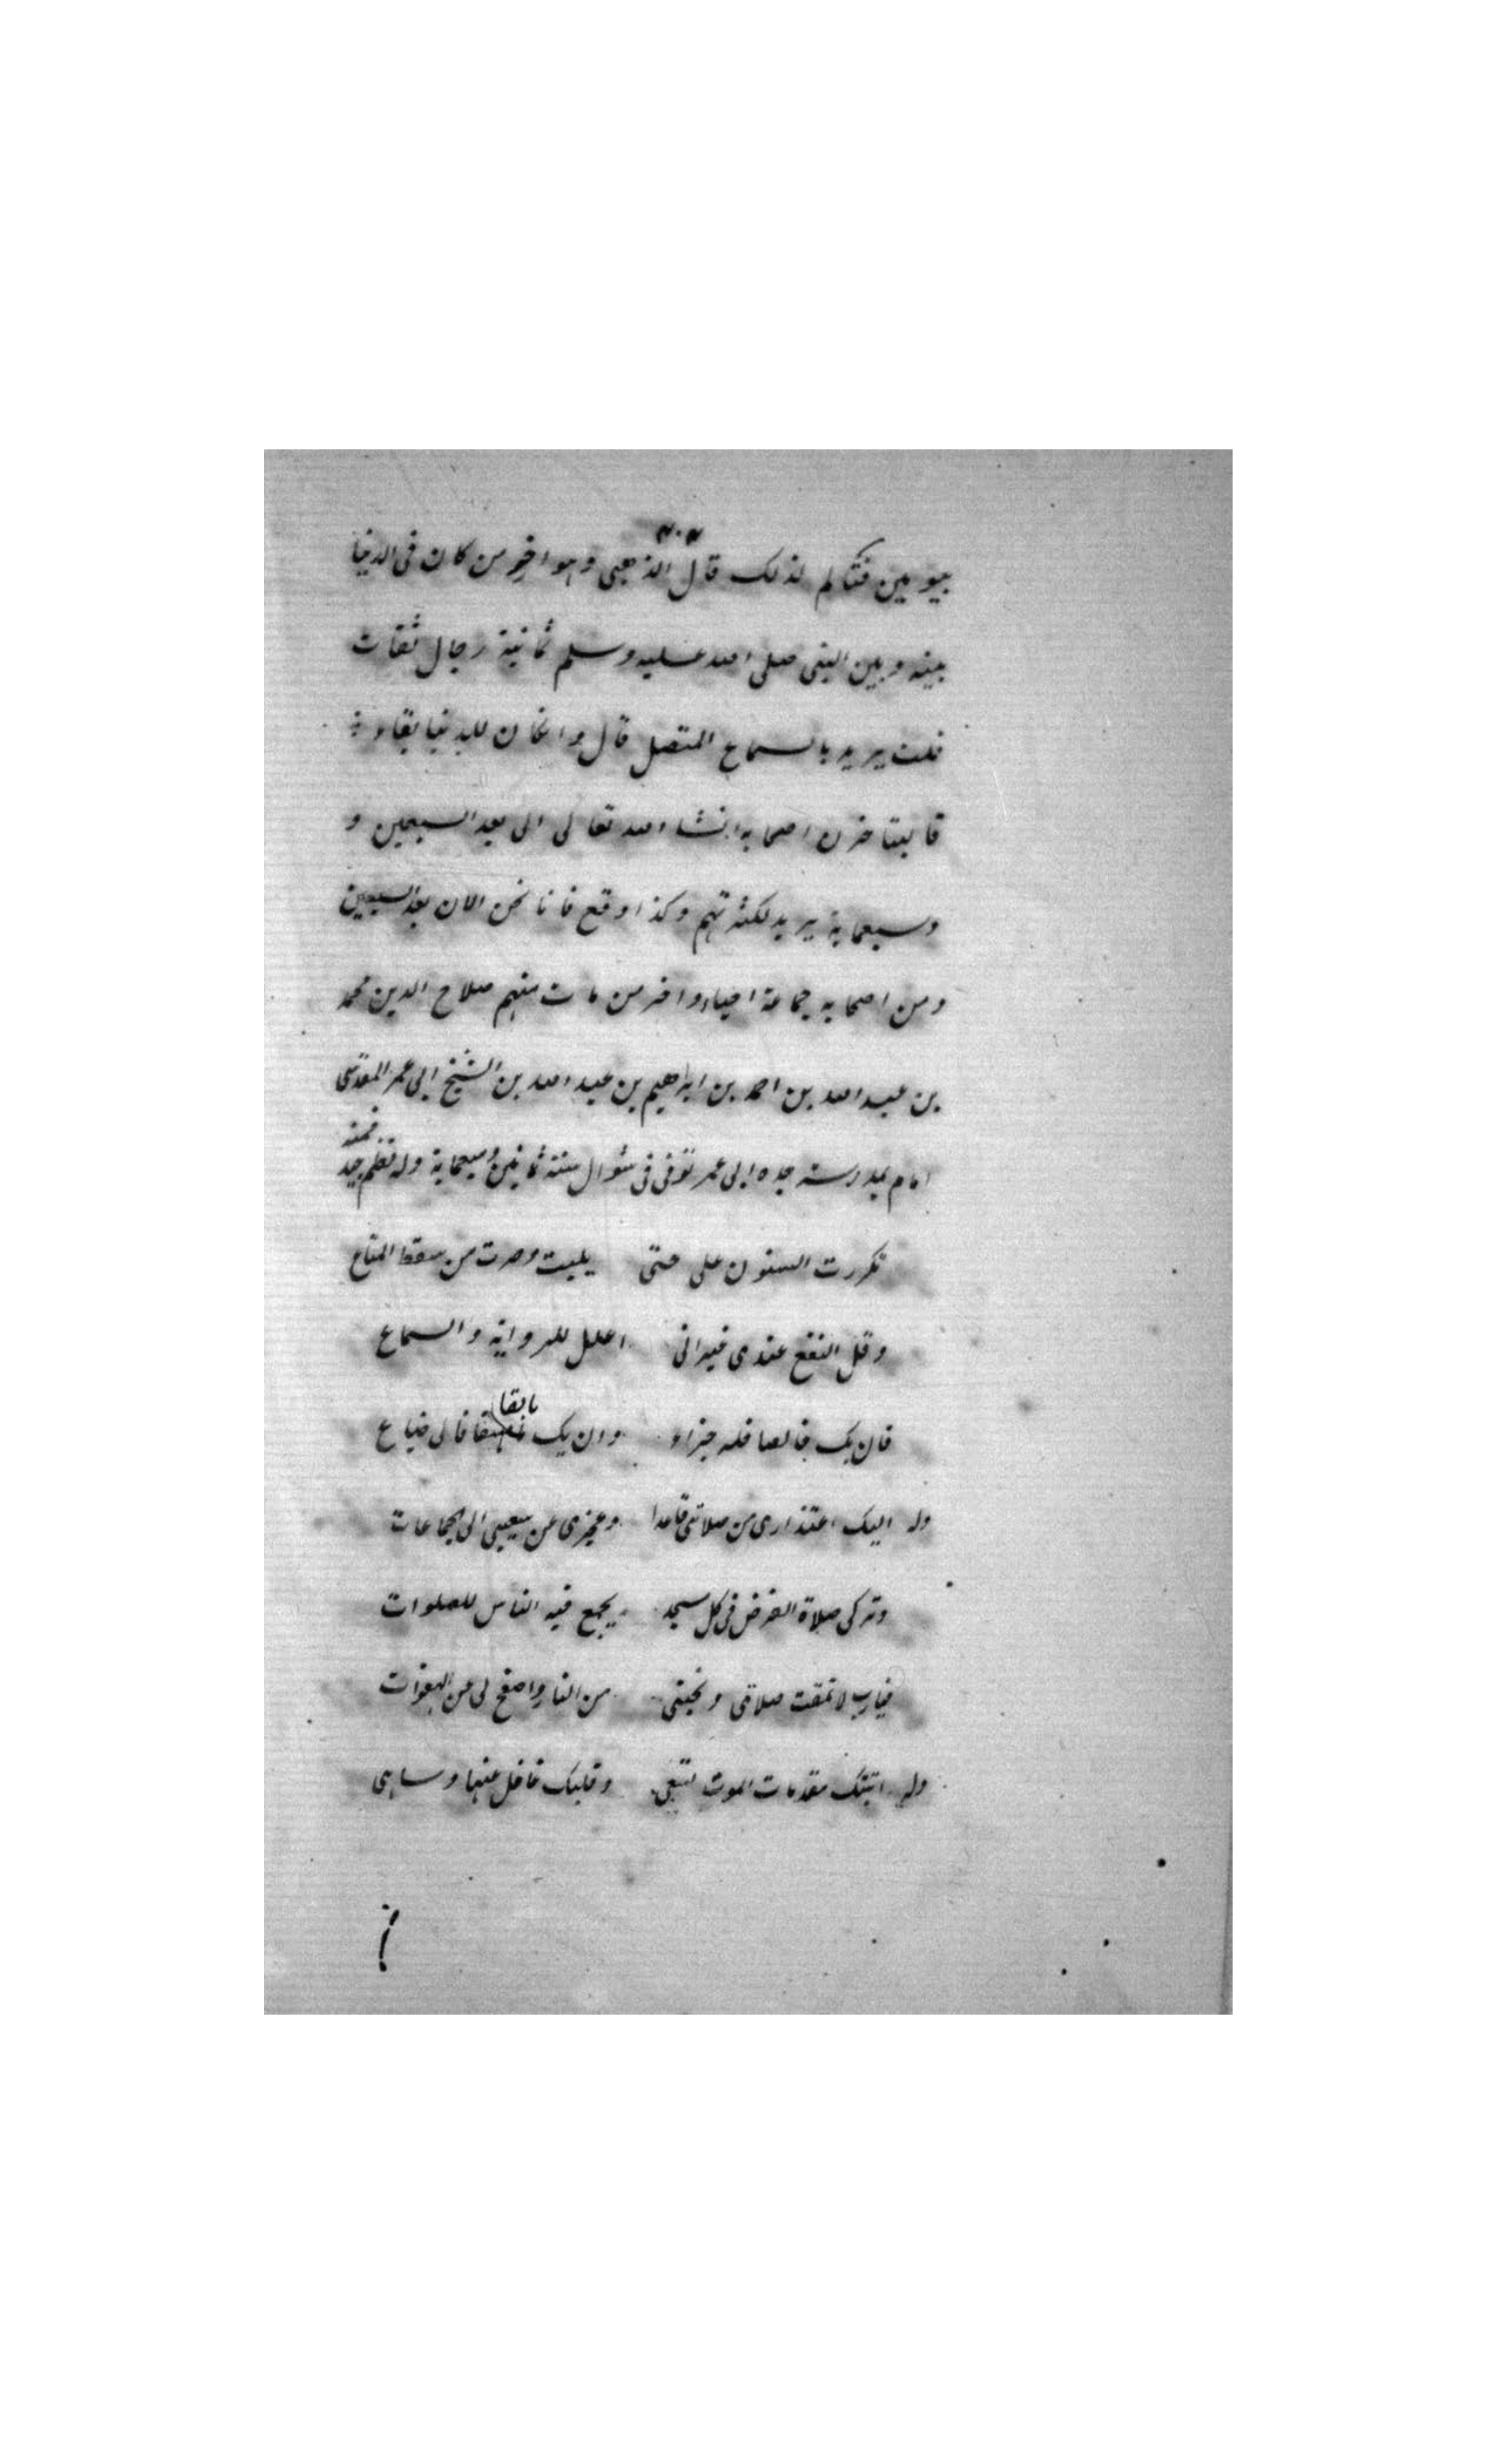 بيومين فتكالم لذلك قال الذهبى وهو اخر من كان فى الدنيا
بينه وبين النبى صلى الله عليه وسلم ثمانية رجال ثقات
قلت يريد بالسماع المتصل قال وان كان للدنيا بقاء
فاليتاخرن اصحابه انشاء الله تعالى الى بعد السبعين و
وسبعماية يريد لكثرتهم وكذا وقع فانا نحن الان بعد السبعين
ومن اصحابه جماعة احياء واخر من مات منهم صلاح الدين محمد
بن عبد الله بن احمد بن ابراهيم بن عبد الله بن الشيخ ابى عمر المقدسى
امام بمدرسة جده ابى عمر توفى فى شوال سنة ثمانين وسبعماية وله نظم جيد فمنه
تكررت السنون على حتى بليت وصرت من سقط المتاع
وقل النفع عندى غير انى اعلل للرواية والسماع
فان يك خالصا فله جزاء وان يك مالقا فالى ضياع
وله اليك اعتذارى من صلاتى قاعدا وعجزى عن سعيى الى الجماعات
وتركى صلاة الفرض فى كل مسجد يجمع فيه الناس للصلوات
فيارب لا تمقت صلاتى ونجنى من النار واصفح لى عن الهفوات
وله اتتك مقدمات الموت تسعى وقلبك غافل عنها وساهى